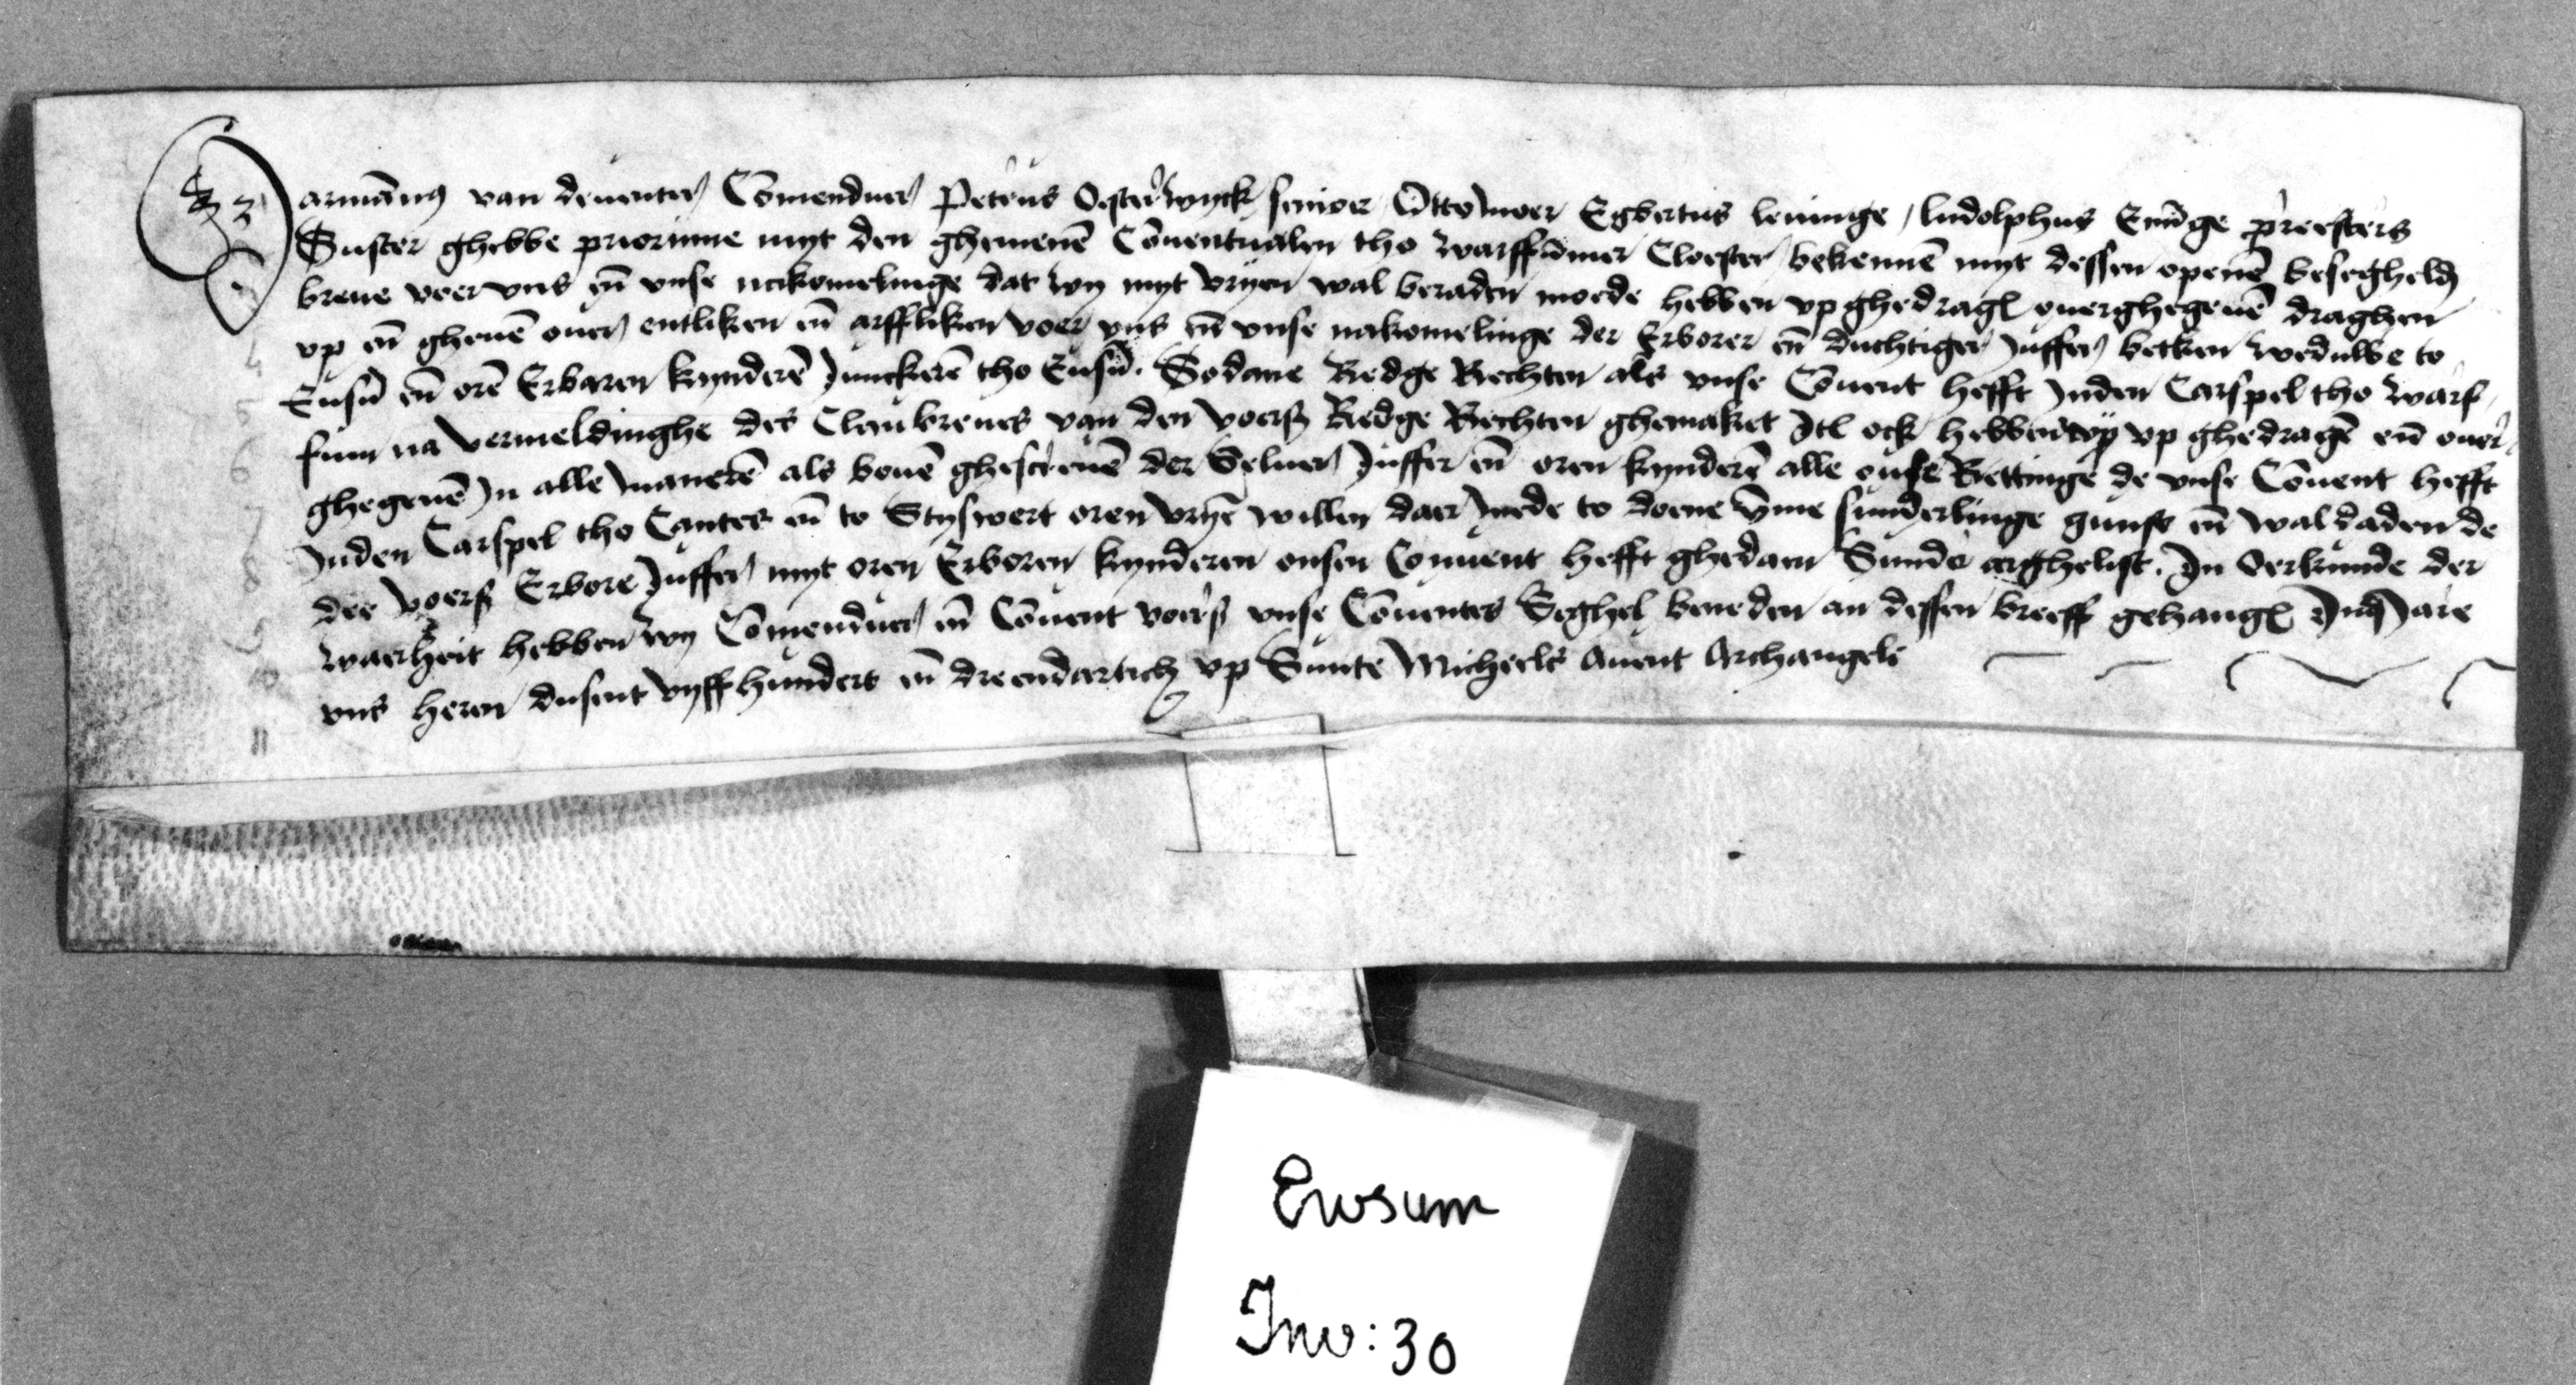 Harmānus van deuenter Cōmenduer Petrus Oesterwyck senior Otto moer Egbertus leninge / ludolphus Eninge preesters
Suster ghebbe priorinne myt den ghemenē Cōuentualen tho warffūmer Cloester bekennē myt dessen openē beseghelden
breue voer vns eñ vnse nakomelinge dat wy myt vryen wal beraden moede hebben vp ghedragē ouerghegeuē draghen
vp eñ gheuē ouer entliken eñ arffliken voer vns eñ vnse nakomelinge der Erborer eñ duchtiger Juffer betken weduwe to
Eusū eñ orē Erbaren kynderē Junckerē tho Eusū. Sodane Redge Rechten als vnse Cōuent hefft Jnden Carspel tho warf
fum na vermeldinghe des Claubreues van den voers Redge Rechten ghemaket Jtē ock hebben wy vp ghedragē eñ ouer
ghegeuē Jn alle manerē als bouē ghescreuē der Seluer Juffer eñ oren kynderē alle onse Rettinge de vnse Cōuent hefft
Jnden Carspel tho Cantes eñ to Styswert oren vryē willen daer mede to doene vmme sunderlinge gunst eñ waldaden de
dee voers Erbore Juffer myt oren Erboren kynderen onsen Conuent hefft ghedaen Sunder arghelist. Jn Oerkunde der
waerheit hebben wy Cōmenduer eñ Cōuent voers vnse Cōuentes Seghel beneden an dessen breeff gehangē Jnt Jare
vns heren dusent vyffhundert eñ dreendartich vp Sunte Micheels Auent Archangele
4
5
6
7
8
9
10
11
Ewsum
Inv: 30